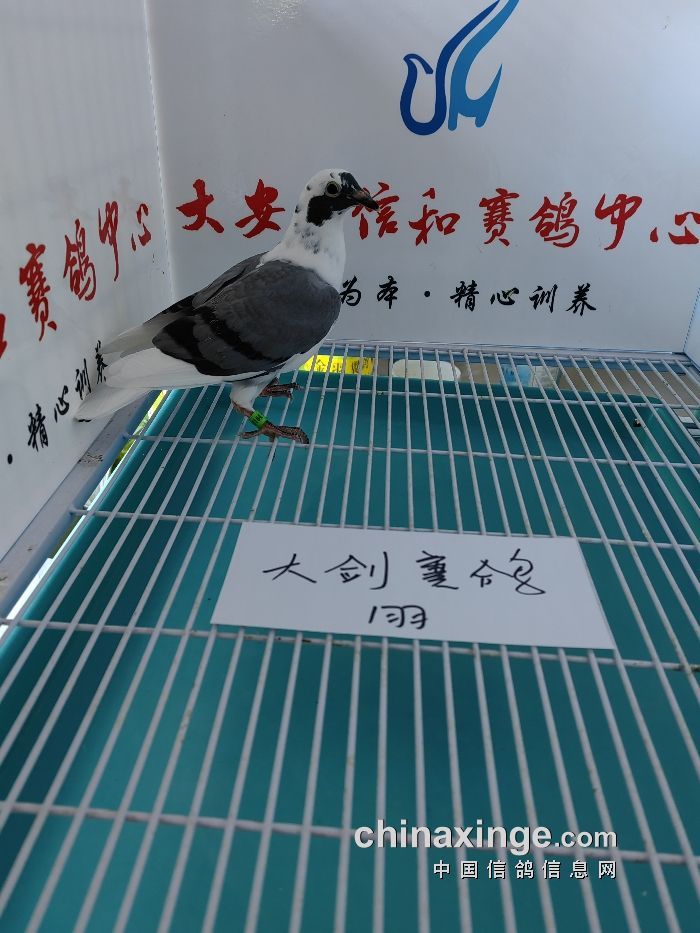 大安信和赛鸽中心
为本·精心训养
赛鸽中心
·精心训养
大剑赛鸽
1羽
chinaxinge.com
中国信鸽信息网